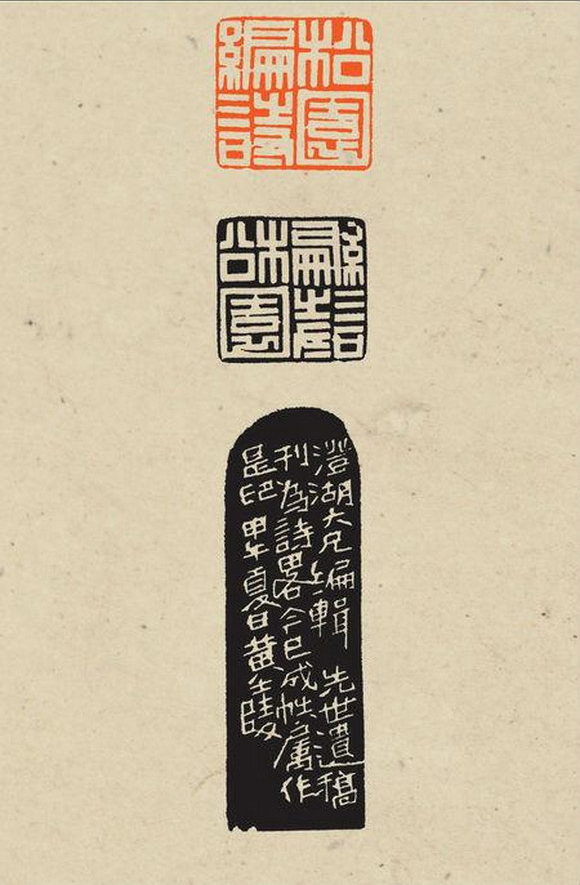 松園
編詩
松園
編詩
澄湖大兄編輯 先世遺稿
刊為詩畧今已成帙屬作
是印 甲午夏日黄士陵